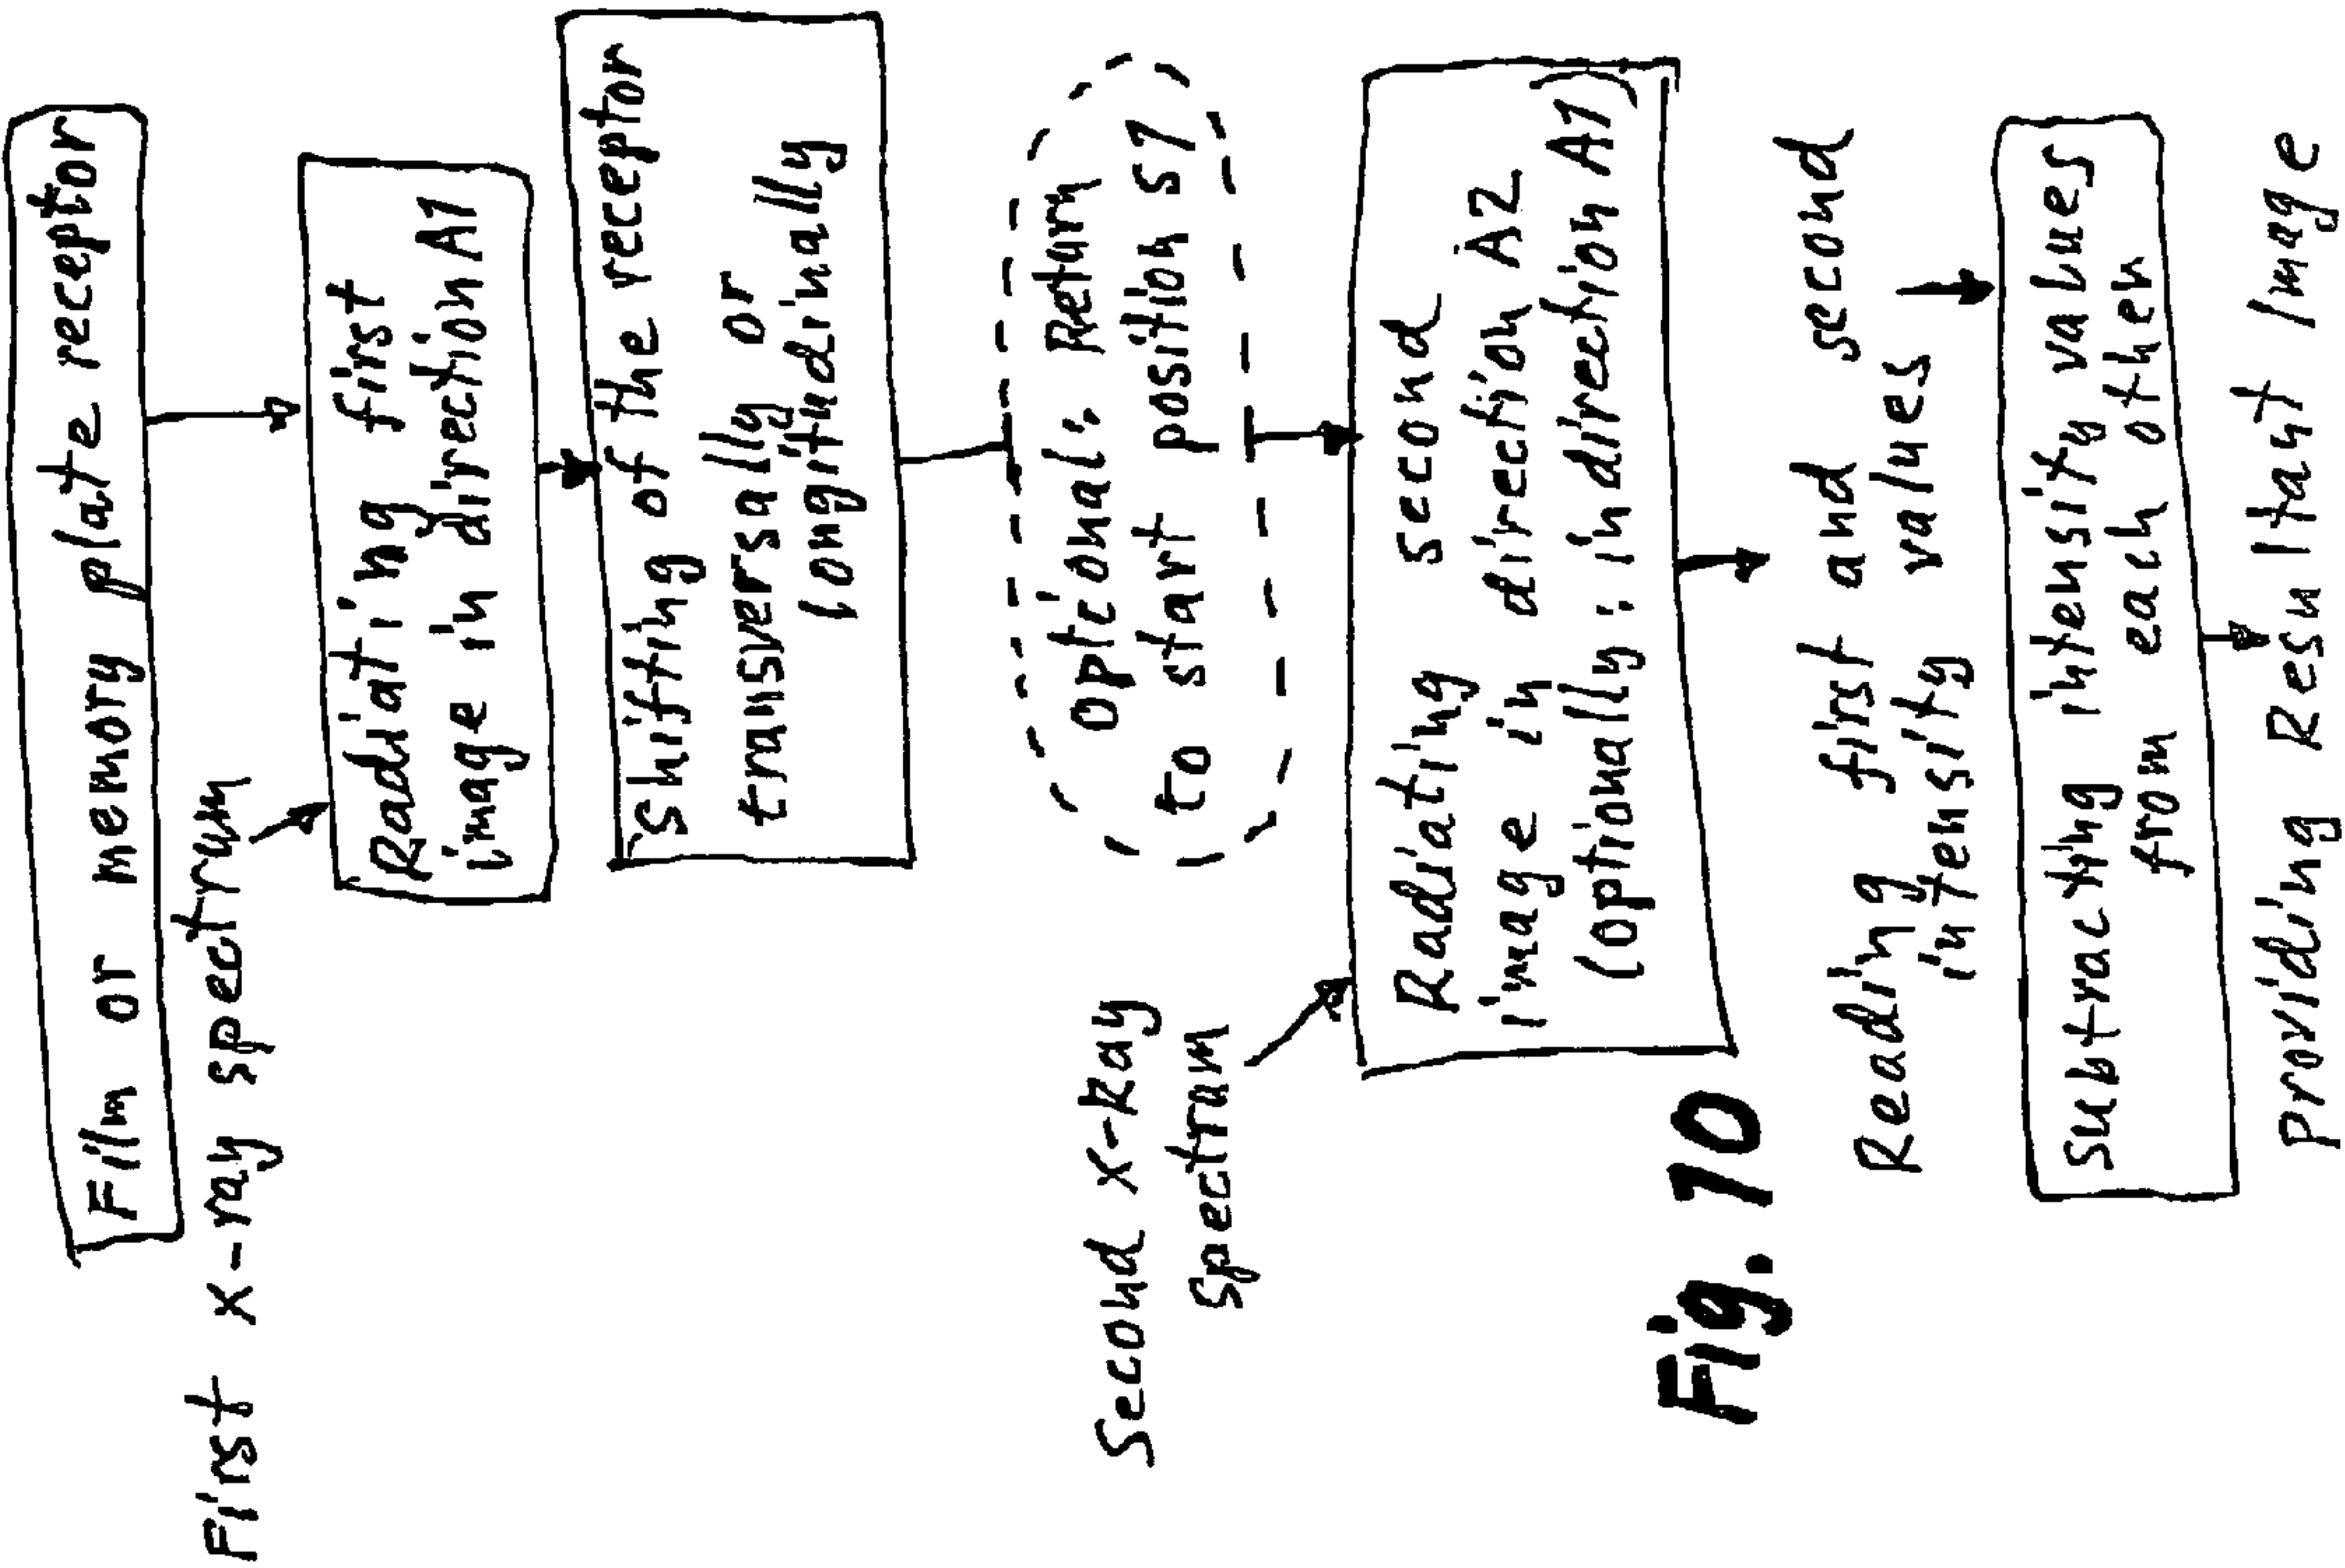 Film or memory plate receptor
First x-ray spectrum
Radiating first
image in direction A1
Shifting of the receptor
transversally or
longitudinally
Optional: Return
to start position S1
Second x-Ray
Spectrum
Radiating second
image in direction A2
(optionally: in direction A1)
Fig. 10
Reading first and second
intensity values
Subtracting intensity values
from each other
Providing Resultant Image